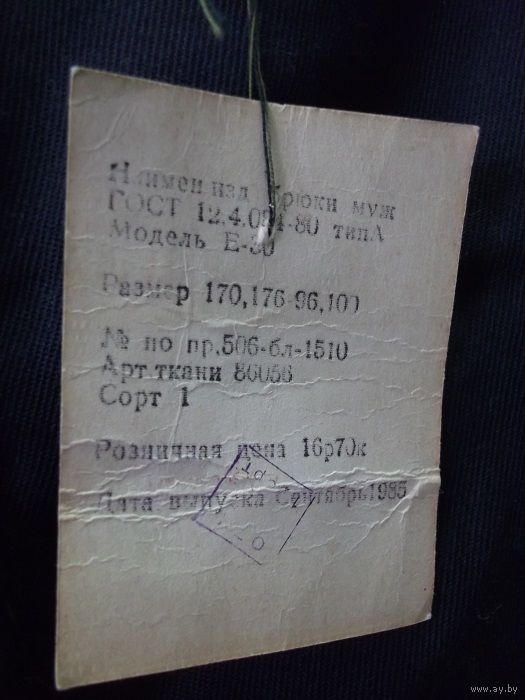 Наимен изд брюки муж
ГОСТ 12.4.084-80 типА
Модель Е-30
Размер 170,176-96,100
№ по пр.506-бл-1510
Арт.ткани 86056
Сорт 1
Розничная цена 16р70к
Дата выпуска Сентябрь1985
www.ay.by